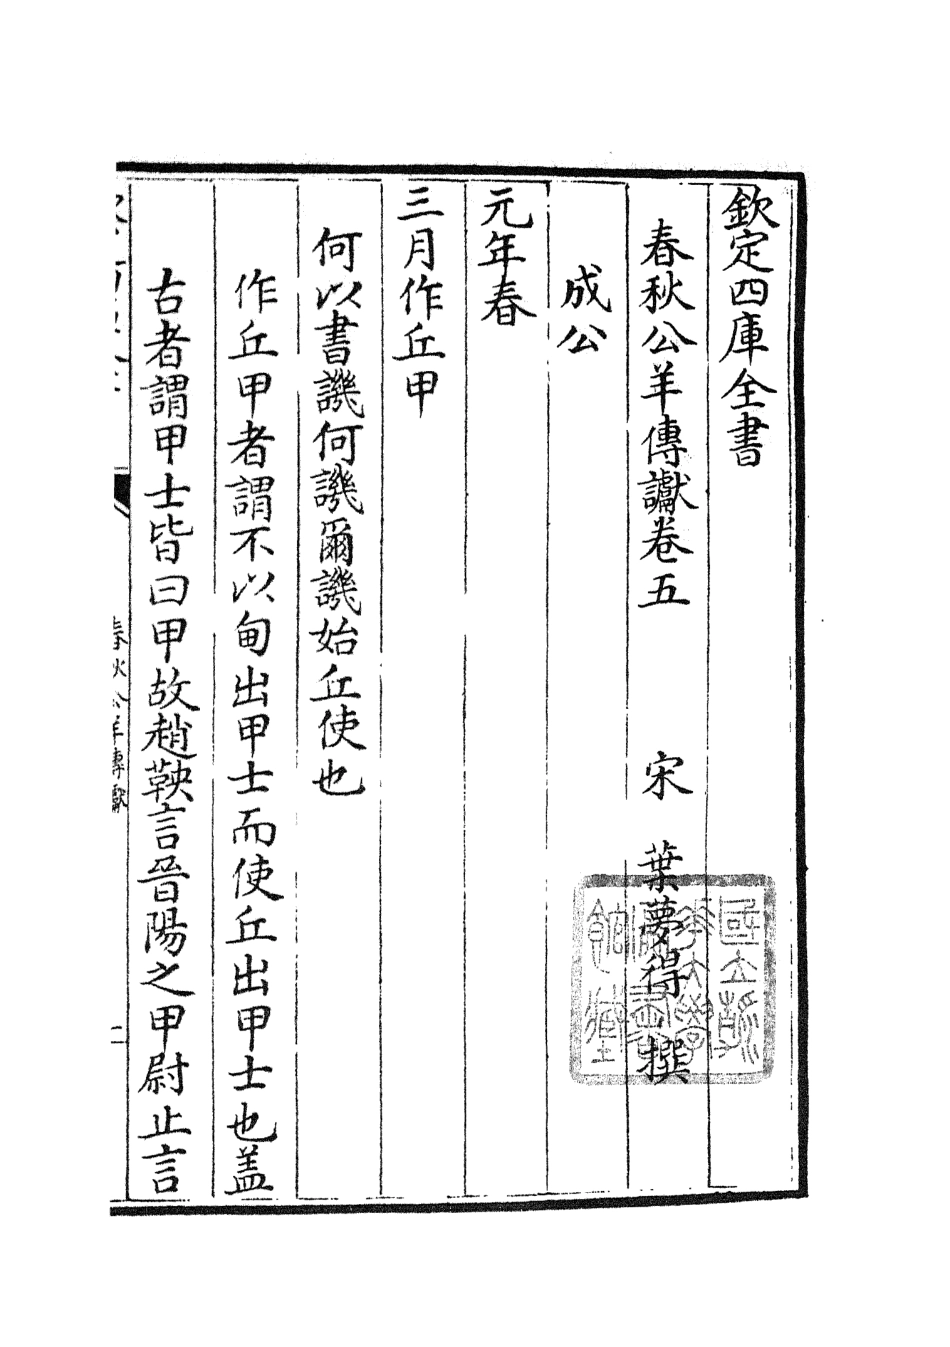 欽定四庫全書
春秋公羊傳讞卷五 宋 葉夢得 撰
成公
元年春
三月作丘甲
何以書譏何譏爾譏始丘使也
作丘甲者謂不以甸出甲士而使丘出甲士也盖
古者謂甲士皆曰甲故趙鞅言晉陽之甲尉止言
春秋公羊傳讞